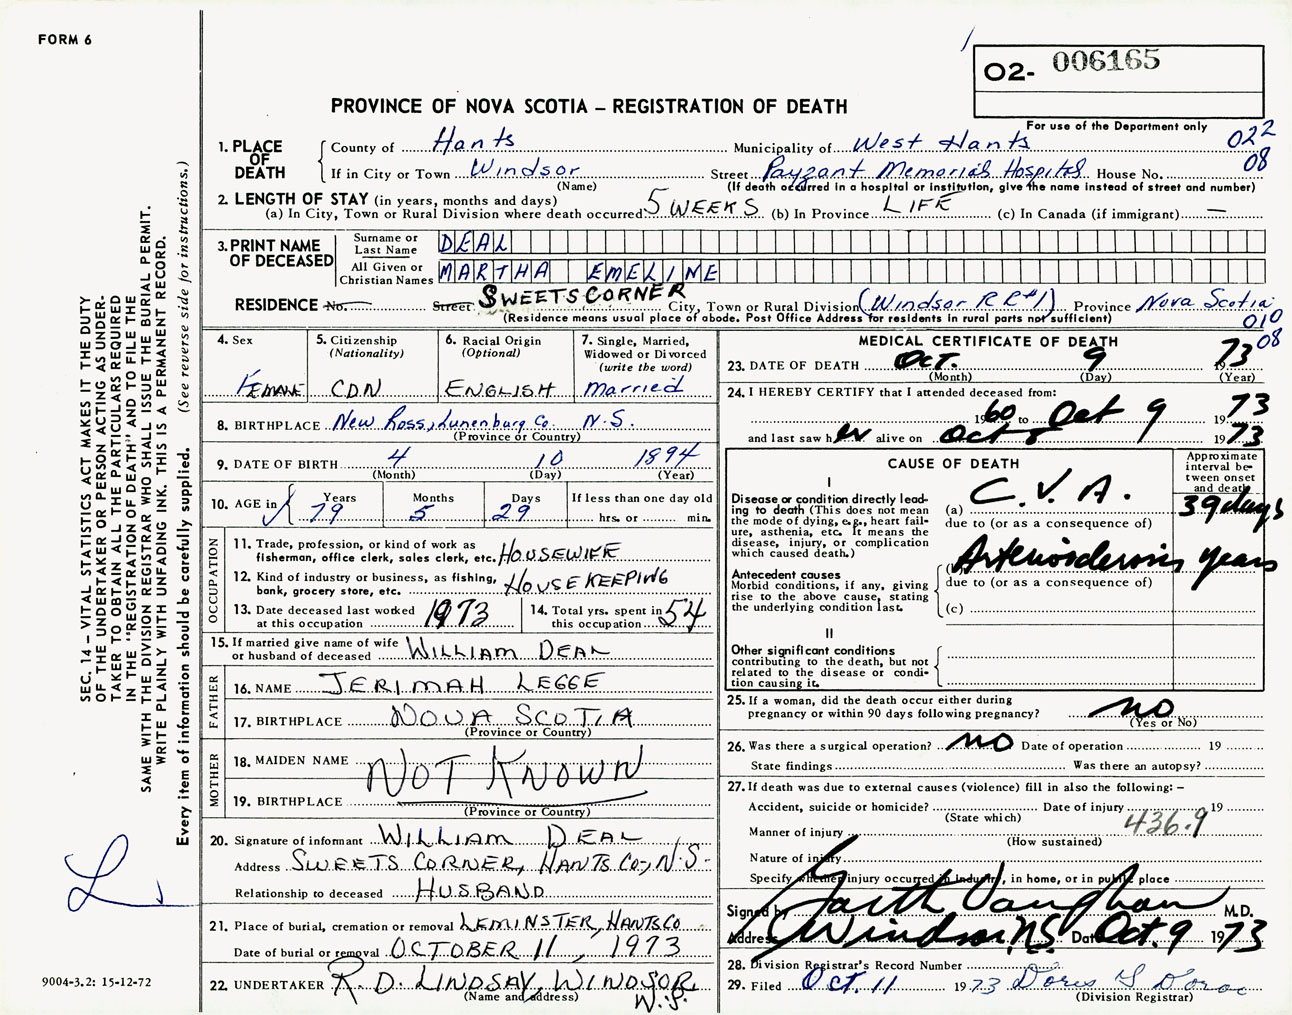 FORM 6
02- 006165
PROVINCE OF NOVA SCOTIA – REGISTRATION OF DEATH
For use of the Department only
022
08
1. PLACE OF DEATH
County of Hants Municipality of West Hants
If in City or Town Windsor Street Payzant Memorial Hospital House No.
(Name) (If death occurred in a hospital or institution, give the name instead of street and number)
2. LENGTH OF STAY (in years, months and days)
(a) In City, Town or Rural Division where death occurred 5 WEEKS (b) In Province LIFE (c) In Canada (if immigrant) —
3. PRINT NAME OF DECEASED
Surname or Last Name DEAL
All Given or Christian Names MARTHA EMELINE
RESIDENCE No. Street SWEETS CORNER City, Town or Rural Division (Windsor RR#1) Province Nova Scotia
(Residence means usual place of abode. Post Office Address for residents in rural parts not sufficient)
010
08
4. Sex FEMALE
5. Citizenship (Nationality) CDN
6. Racial Origin (Optional) ENGLISH
7. Single, Married, Widowed or Divorced (write the word) Married
8. BIRTHPLACE New Ross, Lunenburg Co. N.S.
(Province or Country)
9. DATE OF BIRTH 4 10 1894
(Month) (Day) (Year)
10. AGE in Years 79 Months 5 Days 29 If less than one day old hrs. or min.
OCCUPATION
11. Trade, profession, or kind of work as fisherman, office clerk, sales clerk, etc. HOUSEWIFE
12. Kind of industry or business, as fishing, bank, grocery store, etc. HOUSEKEEPING
13. Date deceased last worked at this occupation 1973
14. Total yrs. spent in this occupation 54
15. If married give name of wife or husband of deceased WILLIAM DEAL
FATHER
16. NAME JERIMAH LEGGE
17. BIRTHPLACE NOVA SCOTIA
(Province or Country)
MOTHER
18. MAIDEN NAME NOT KNOWN
19. BIRTHPLACE
(Province or Country)
20. Signature of informant WILLIAM DEAL
Address SWEETS CORNER, HANTS CO., N.S.
Relationship to deceased HUSBAND
21. Place of burial, cremation or removal LEMINSTER, HANTS CO
Date of burial or removal OCTOBER 11, 1973
22. UNDERTAKER R. D. LINDSAY, WINDSOR, N.S.
(Name and address)
MEDICAL CERTIFICATE OF DEATH
23. DATE OF DEATH Oct. 9 1973
(Month) (Day) (Year)
24. I HEREBY CERTIFY that I attended deceased from:
1960 to Oct 9 1973
and last saw her alive on Oct 8 1973
CAUSE OF DEATH
Approximate interval between onset and death
I
Disease or condition directly leading to death (This does not mean the mode of dying, e.g., heart failure, asthenia, etc. It means the disease, injury, or complication which caused death.)
(a) C.V.A. 39 days
due to (or as a consequence of)
Antecedent causes
Morbid conditions, if any, giving rise to the above cause, stating the underlying condition last.
(b) Arteriosclerosis years
due to (or as a consequence of)
(c)
II
Other significant conditions contributing to the death, but not related to the disease or condition causing it.
25. If a woman, did the death occur either during pregnancy or within 90 days following pregnancy? no
(Yes or No)
26. Was there a surgical operation? no Date of operation 19
State findings Was there an autopsy?
27. If death was due to external causes (violence) fill in also the following: –
Accident, suicide or homicide? Date of injury 19
(State which)
436.9
Manner of injury
(How sustained)
Nature of injury
Specify whether injury occurred in industry, in home, or in public place
Signed by Garth Vaughan M.D.
Address Windsor, N.S. Date Oct. 9 1973
28. Division Registrar's Record Number
29. Filed Oct. 11 1973 Doris
(Division Registrar)
SEC. 14 – VITAL STATISTICS ACT MAKES IT THE DUTY
OF THE UNDERTAKER OR PERSON ACTING AS UNDER-
TAKER TO OBTAIN ALL THE PARTICULARS REQUIRED
IN THE "REGISTRATION OF DEATH" AND TO FILE THE
SAME WITH THE DIVISION REGISTRAR WHO SHALL ISSUE THE BURIAL PERMIT.
WRITE PLAINLY WITH UNFADING INK. THIS IS A PERMANENT RECORD.
Every item of information should be carefully supplied. (See reverse side for instructions.)
9004-3.2: 15-12-72